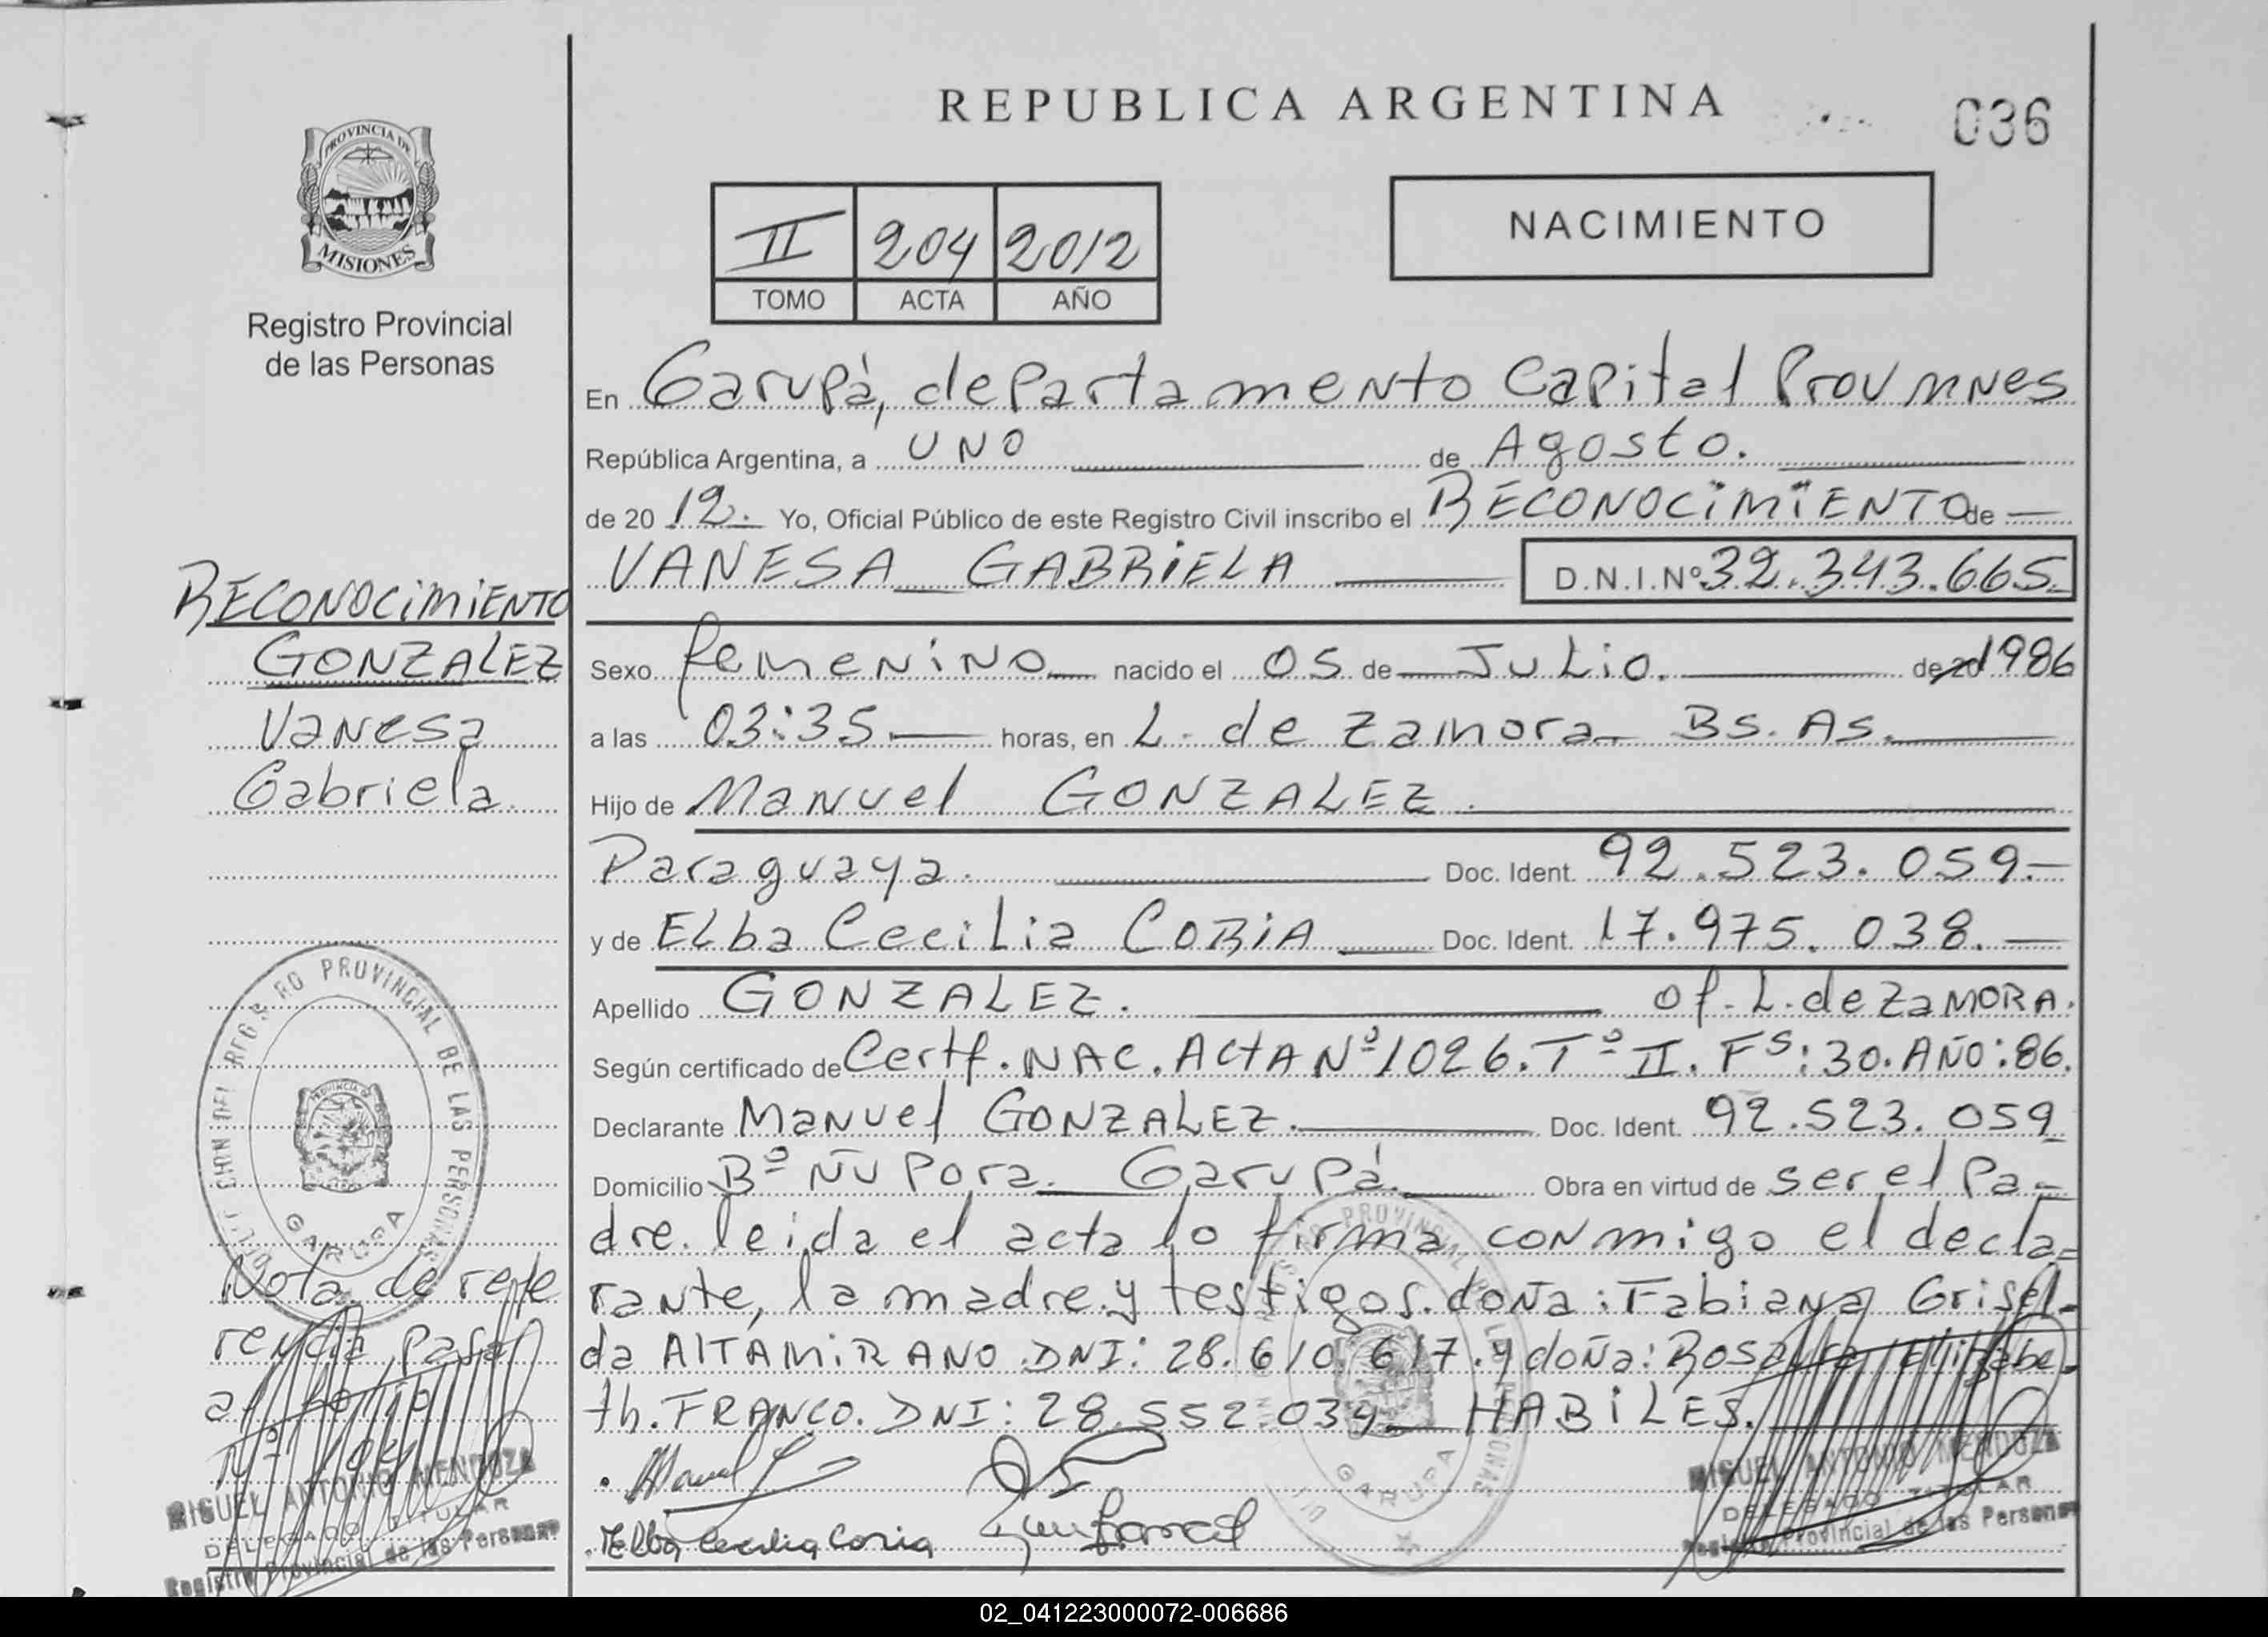 REPUBLICA ARGENTINA
036
PROVINCIA DE
MISIONES
Registro Provincial
de las Personas
II 204 2012
TOMO ACTA AÑO
NACIMIENTO
En Garupá, departamento Capital Prov MNes
República Argentina, a UNO de Agosto.
de 20 12. Yo, Oficial Público de este Registro Civil inscribo el RECONOCIMIENTO de
VANESA GABRIELA D.N.I.Nº 32.343.665
Sexo femenino nacido el 05 de Julio. de 20 1986
a las 03:35 horas, en L. de Zamora Bs. As.
Hijo de Manuel GONZALEZ.
Paraguaya. Doc. Ident. 92.523.059.-
y de Elba Cecilia CORIA Doc. Ident. 17.975.038.
Apellido GONZALEZ. of. L. de ZaMORA.
Según certificado de Certf. NAC. ActA Nº 1026. Tº II. Fs: 30. AÑO: 86.
Declarante Manuel GONZALEZ. Doc. Ident. 92.523.059
Domicilio Bº Ñu Pora. Garupá. Obra en virtud de ser el Pa-
dre. leida el acta lo firma conmigo el decla=
rante, la madre y testigos. doña: Fabiana Grisel-
da AltAMiRANO DNI: 28.610.617. y doña: Elizabe-
th. FRANCO. DNI: 28.552.039 HABILES.
Elba Cecilia Coria
MIGUEL ANTONIO MENDOZA
DELEGADO TITULAR
Registro Provincial de las Personas
RECONOCIMIENTO
GONZALEZ
Vanesa
Gabriela
PROVINCIAL DE LAS PERSONAS
GARUPA
Nota de refe
rencia pasa
al
Nº
MIGUEL ANTONIO MENDOZA
DELEGADO TITULAR
Registro Provincial de las Personas
PROVINCIAL DE LAS PERSONAS
GARUPA
02_041223000072-006686